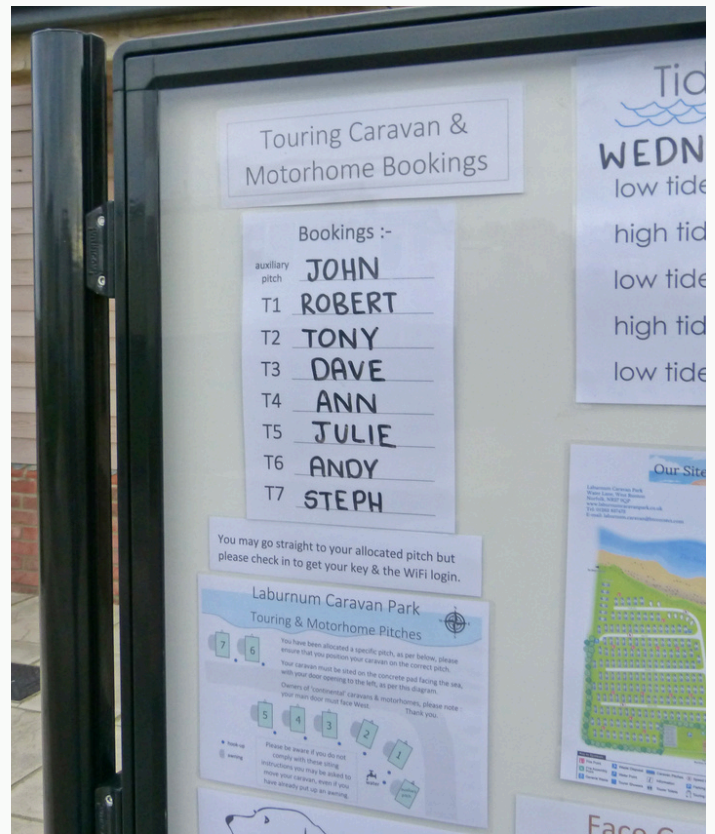 Touring Caravan &
Motorhome Bookings
Bookings :-
auxiliary
pitch JOHN
T1 ROBERT
T2 TONY
T3 DAVE
T4 ANN
T5 JULIE
T6 ANDY
T7 STEPH
You may go straight to your allocated pitch but
please check in to get your key & the WiFi login.
Laburnum Caravan Park
Touring & Motorhome Pitches
You have been allocated a specific pitch, as per below, please
ensure that you position your caravan on the correct pitch.
Your caravan must be sited on the concrete pad facing the sea,
with your door opening to the left, as per this diagram.
Owners of 'continental' caravans & motorhomes, please note
your main door must face West. Thank you.
7 6
5 4 3 2 1
hook-up
awning
Please be aware if you do not
comply with these siting
instructions you may be asked to
move your caravan, even if you
have already put up an awning.
Tid
WEDN
low tide
high tid
low tide
high tid
low tide
Our Site
Laburnum Caravan Park
Face